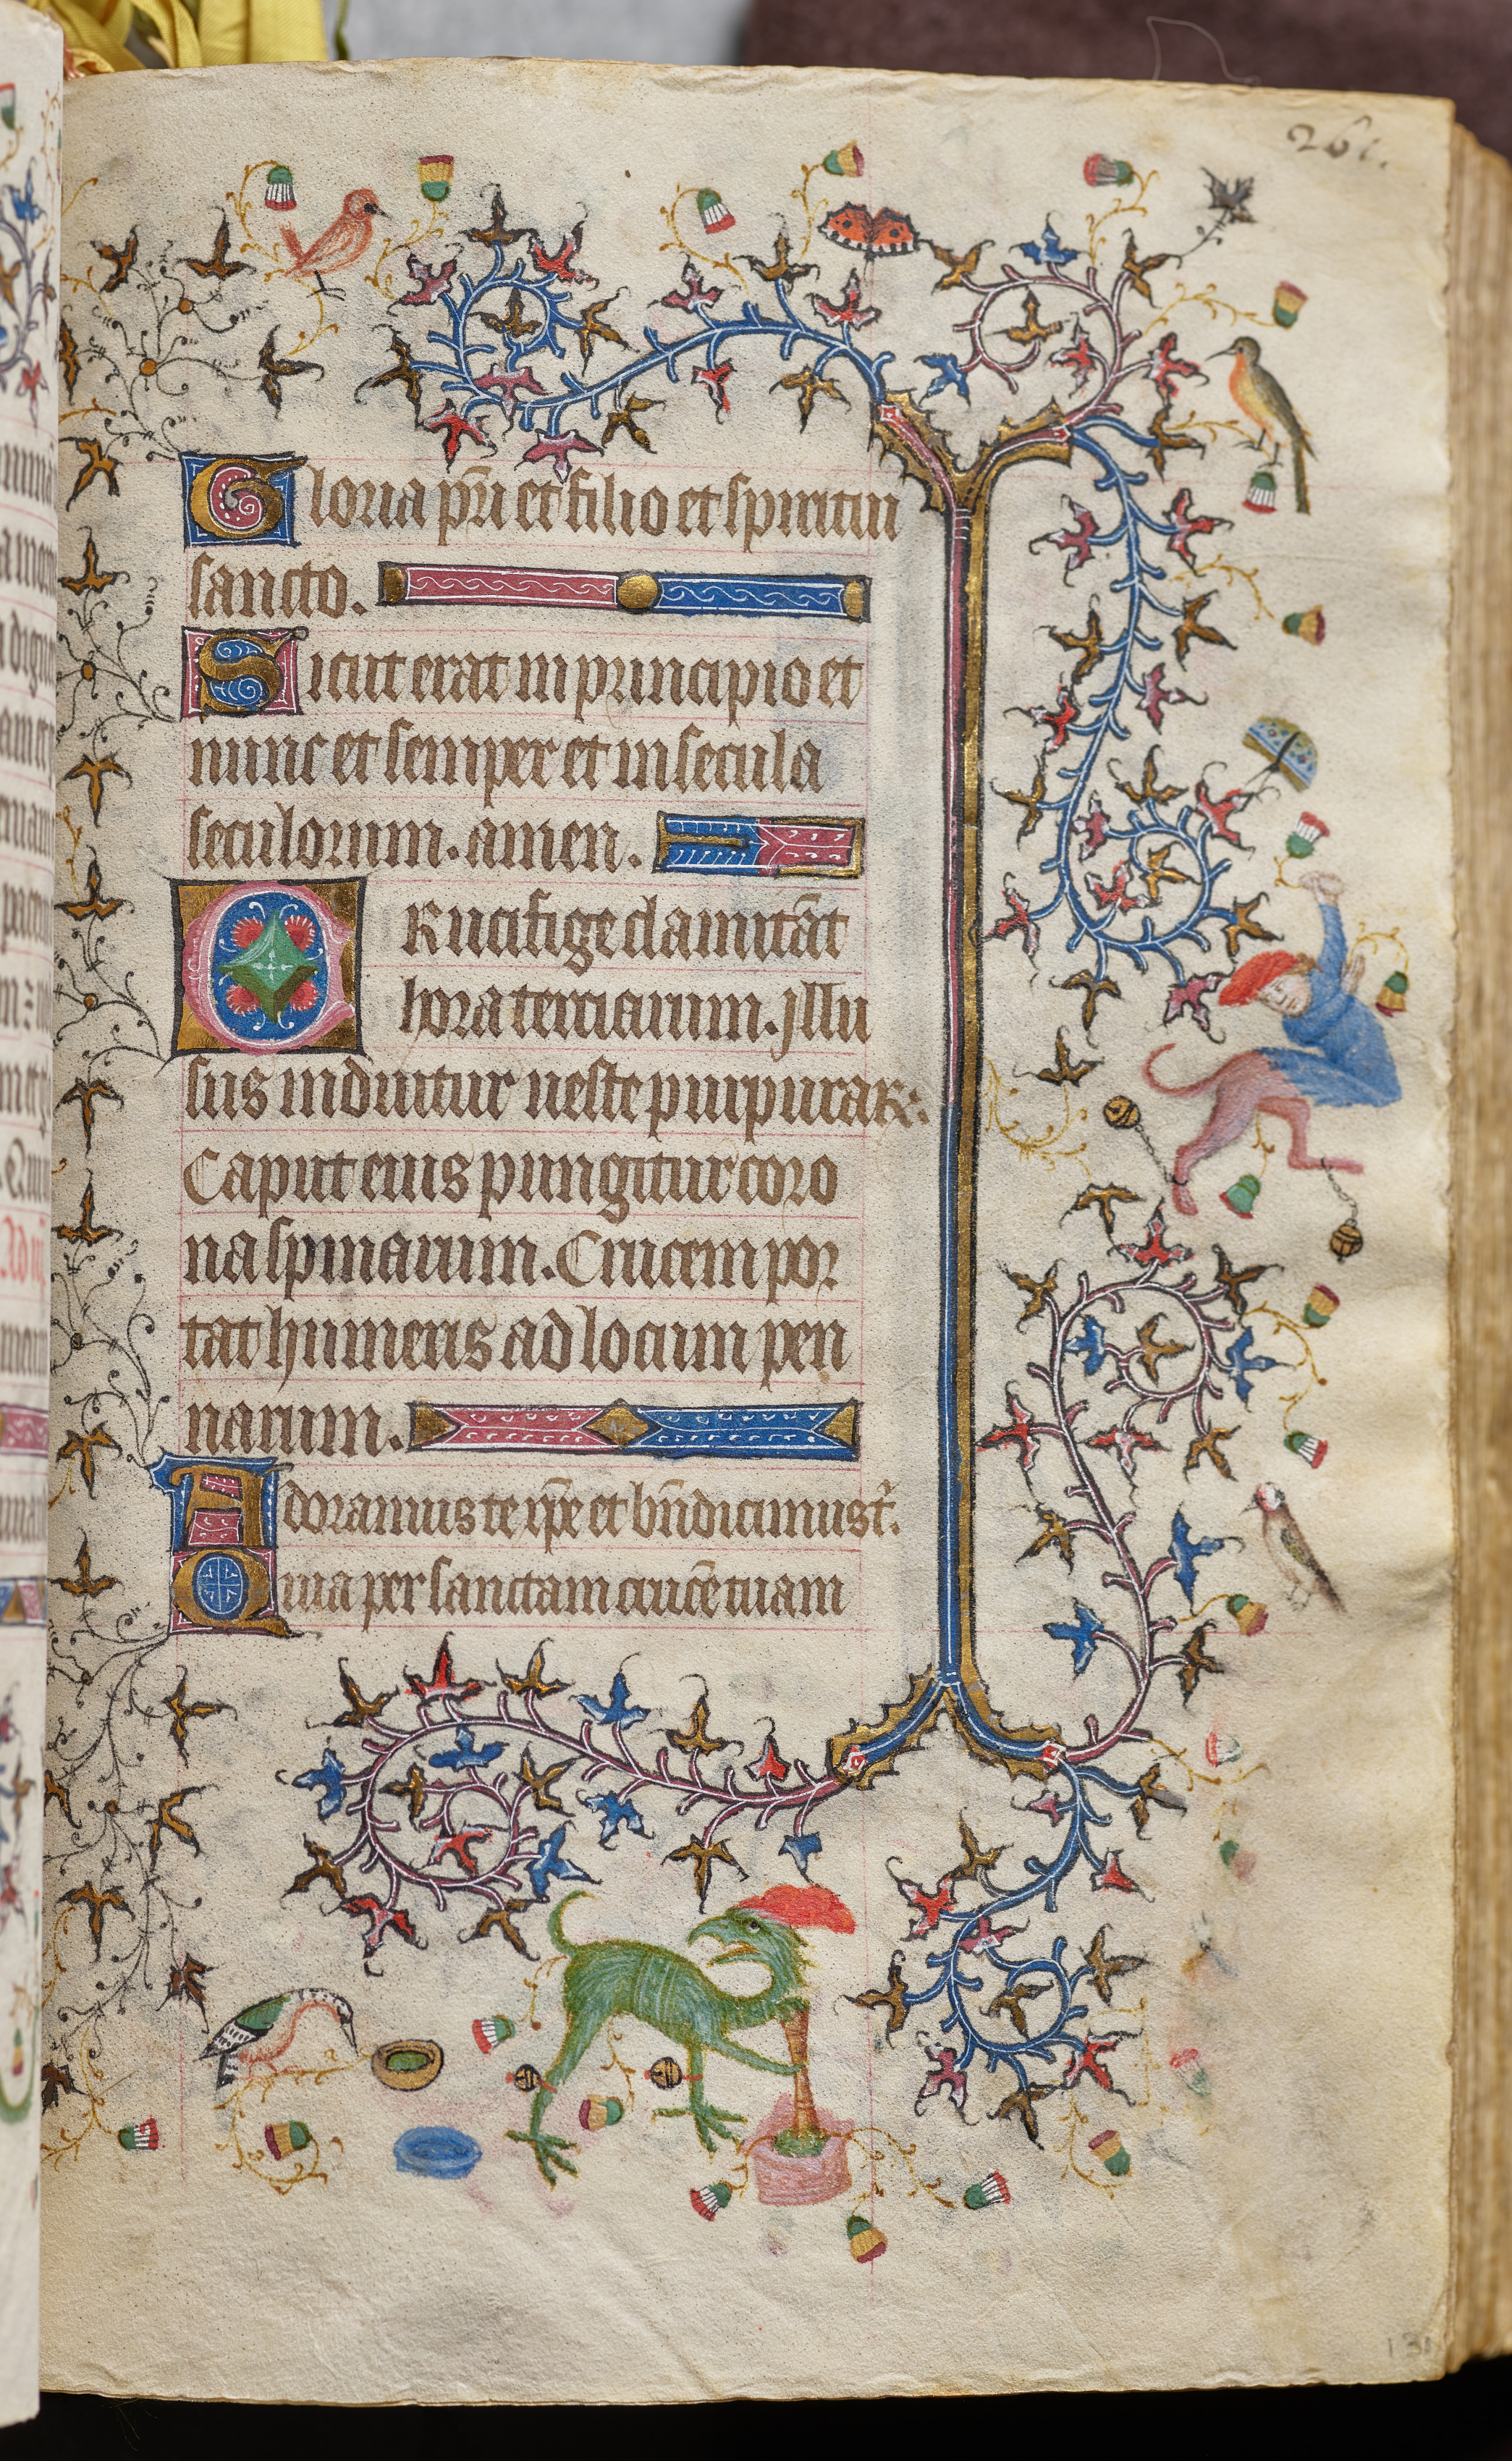 261.
Gloria pr̄i et filio et spiritui
sancto.
Sicut erat in principio et
nunc et semper et in secula
seculorum. amen.
CRucifige clamitāt
hora terciarum. Illu
sus induitur ueste purpurar:
Caput eius pungitur coro
na spinarum. Crucem por
tat humeris ad locum pen
narum.
Adoramus te xp̄e et bn̄dicimus t͛.
Quia per sanctam crucē tuam
131